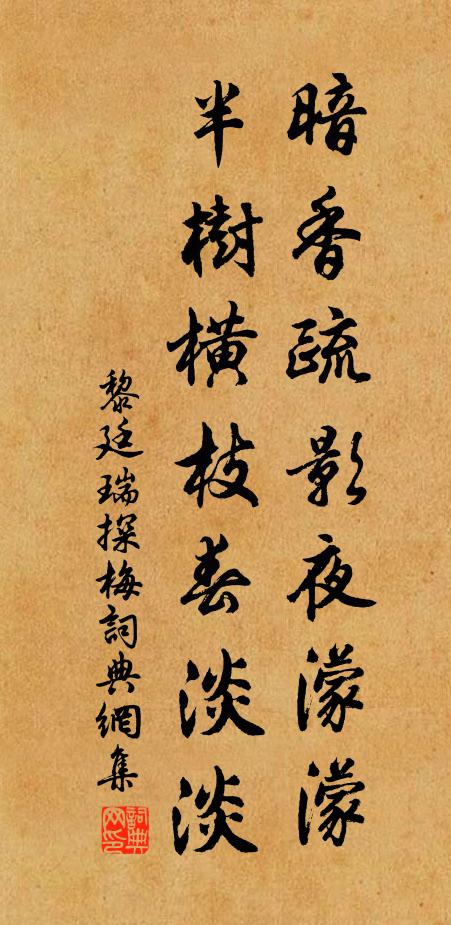 暗香疏影夜濛濛
半樹橫枝春淡淡
黎廷瑞探梅詞典網集
詞典网印